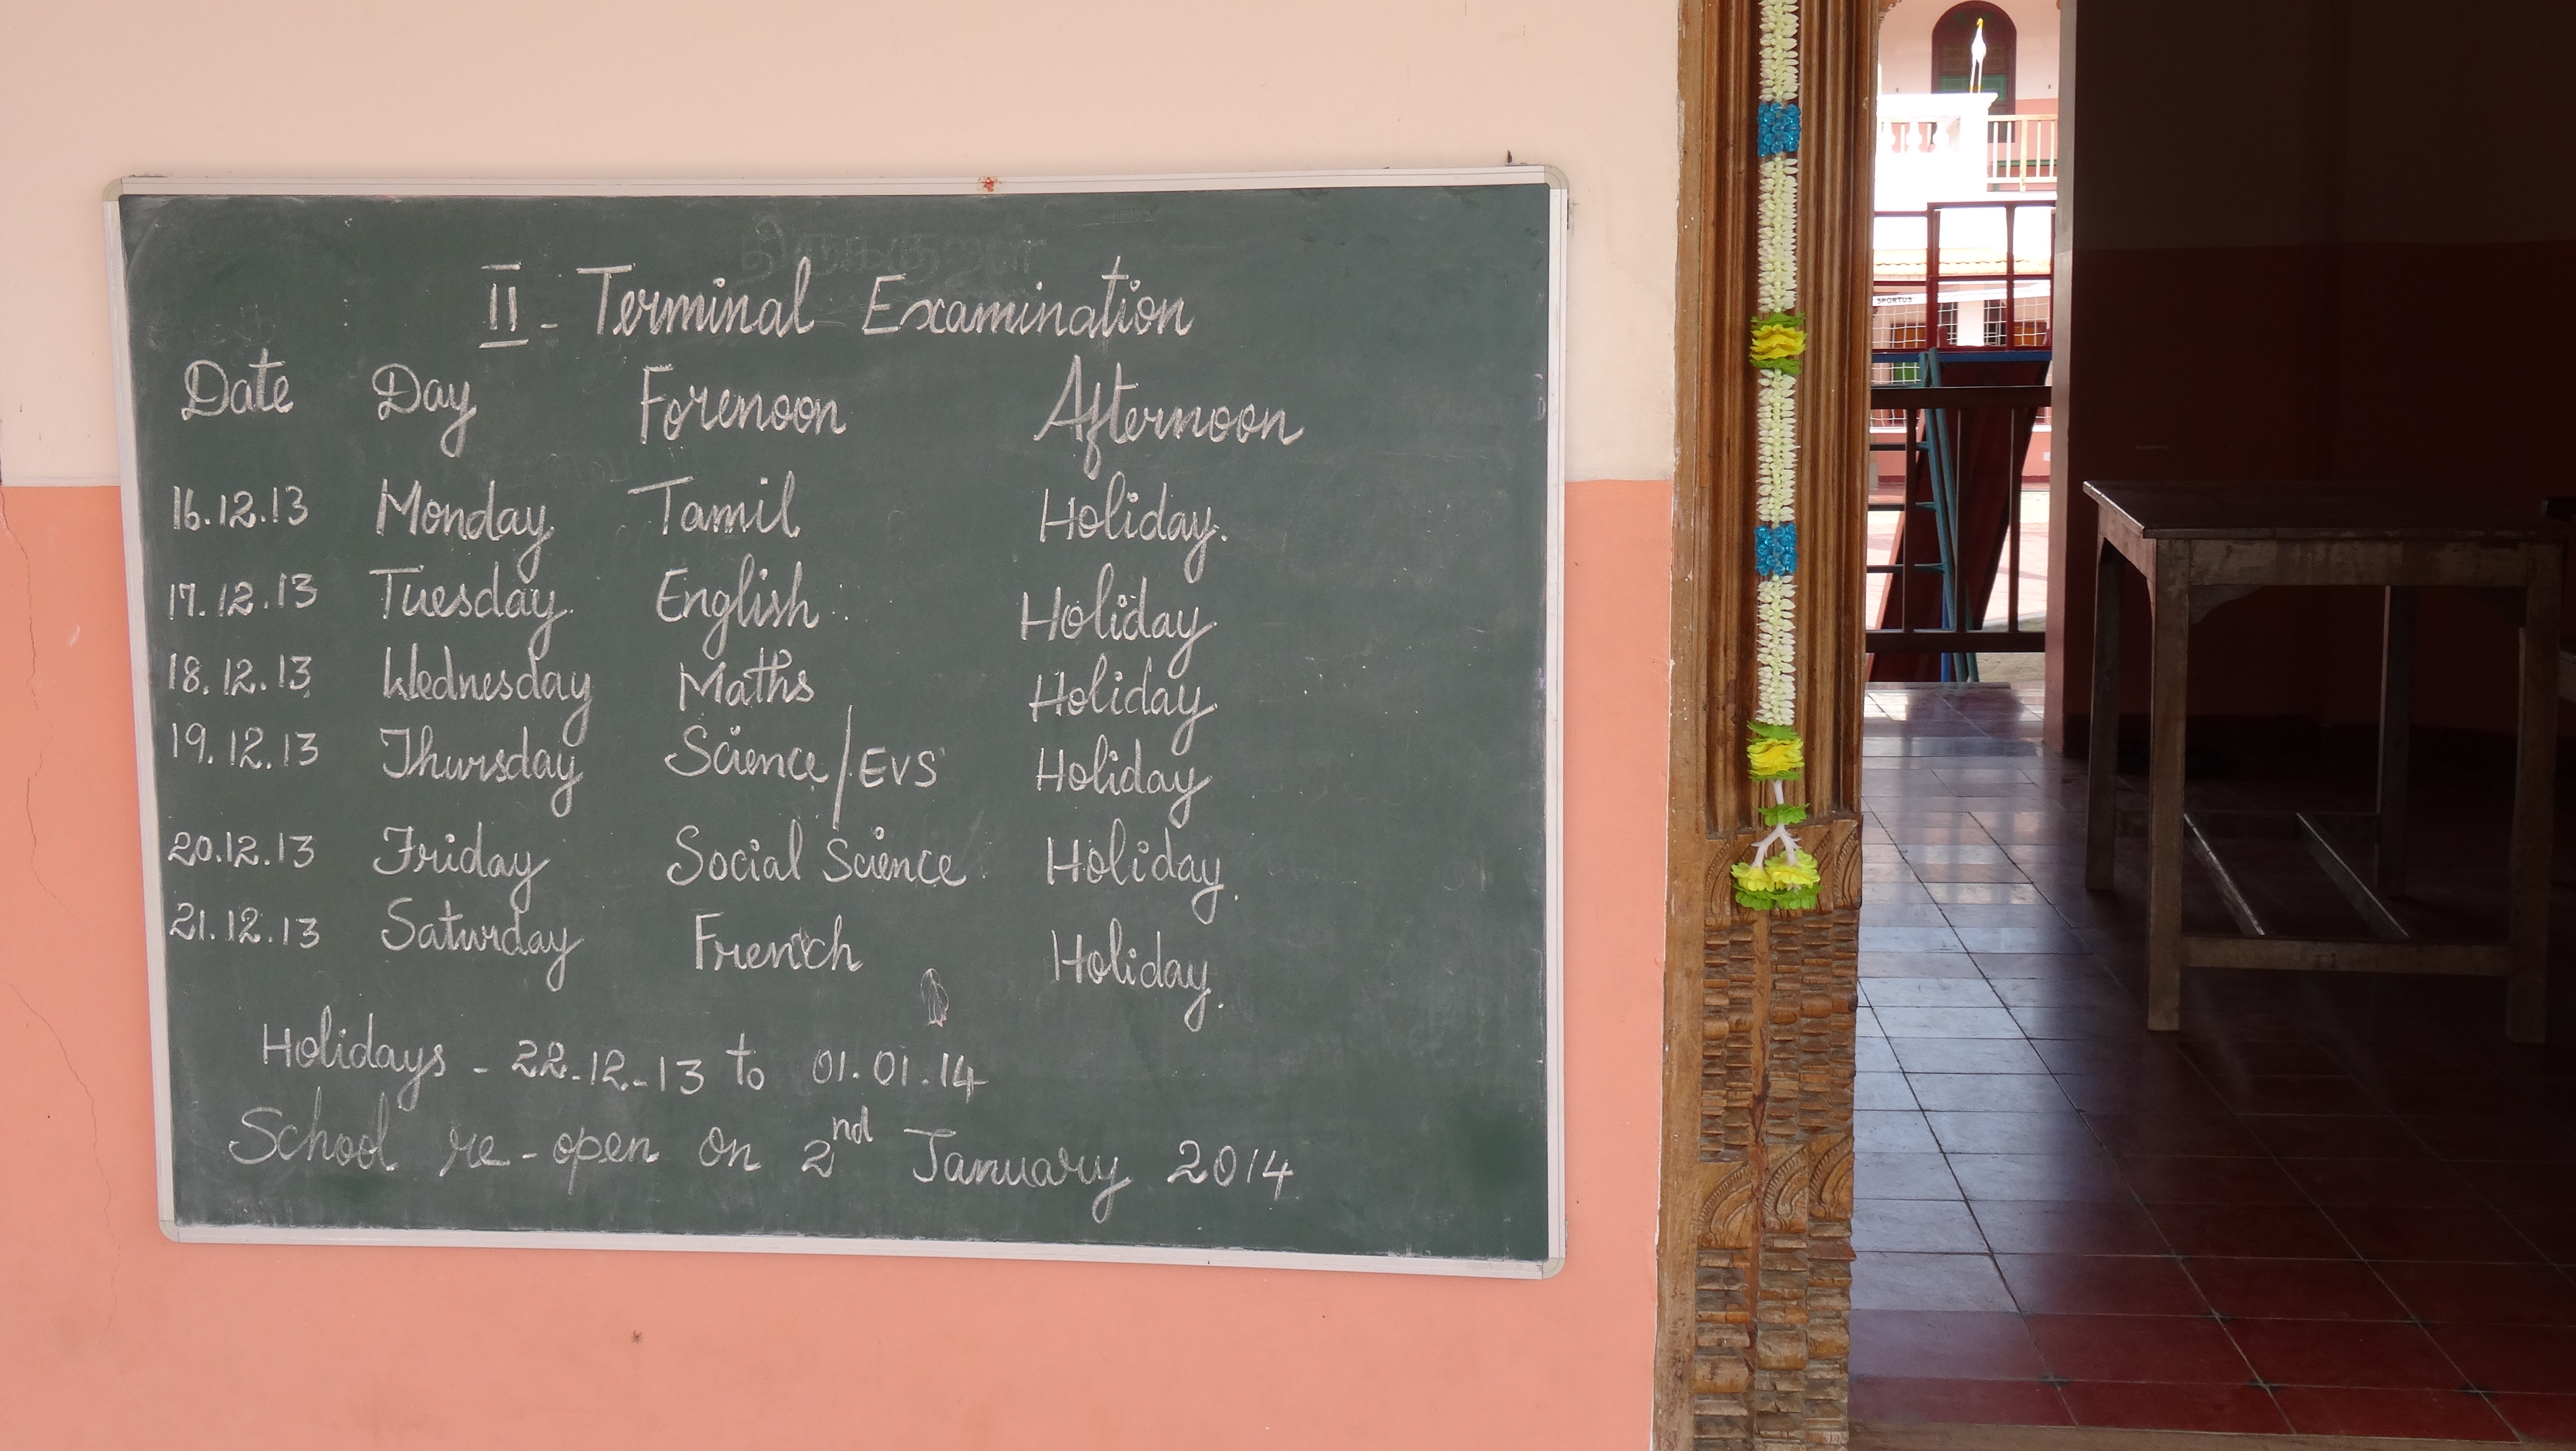 திருக்குறள்
II - Terminal Examination
Date Day Forenoon Afternoon
16.12.13 Monday Tamil Holiday.
17.12.13 Tuesday English Holiday
18.12.13 Wednesday Maths Holiday
19.12.13 Thursday Science/EVS Holiday
20.12.13 Friday Social Science Holiday.
21.12.13 Saturday French Holiday.
Holidays - 22-12-13 to 01.01.14
School re-open on 2nd January 2014
SPORTUS